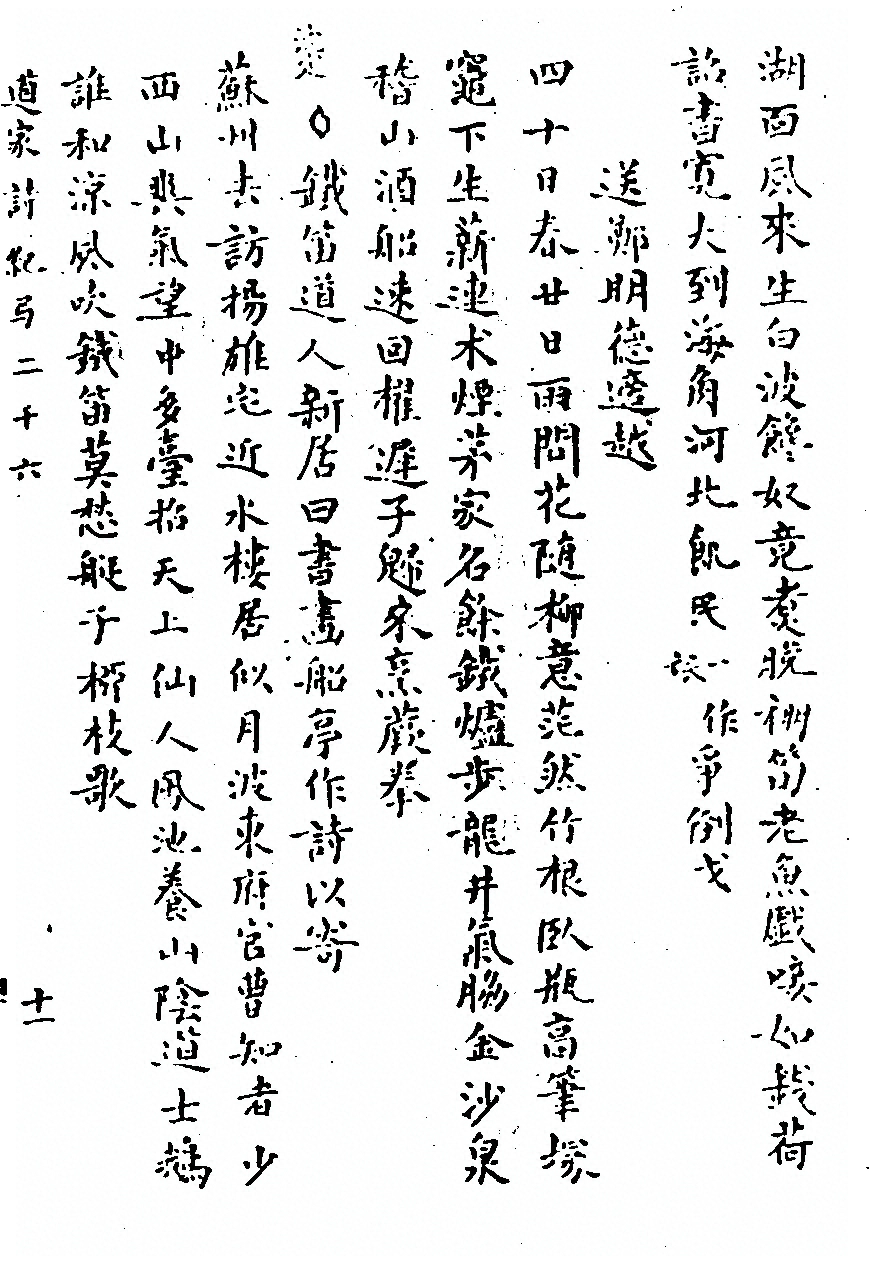 湖面風來生白波饞奴竟煮脫袽笋老魚戲唼如錢荷
詔書寬大到海角河北飢民談一作爭倒戈
送鄭明德適越
四十日春廿日雨問花隨柳意茫然竹根臥瓶高筆塚
竈下生薪連术煙茅家名餘鐵爐步龍井氣勝金沙泉
稽山酒船速回櫂遲子歸來烹蕨拳
鐵笛道人新居曰書畫船亭作詩以寄
蘇州去訪揚雄宅近水樓居似月波來府官曹知者少
西山爽氣望中多臺招天上仙人鳳池養山陰道士鵝
誰和涼風吹鐵笛莫愁艇子櫛枝歌
道家詩紀 弓二千六
十一